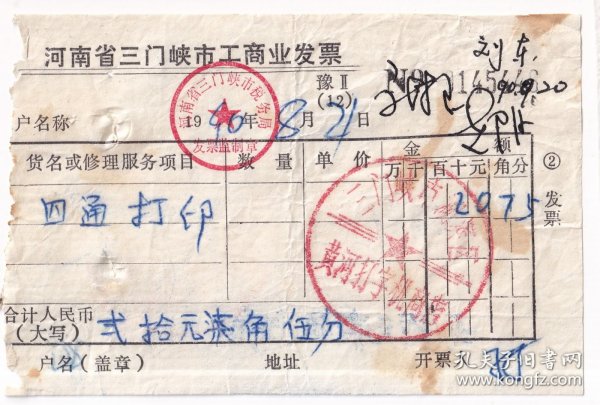 河南省三门峡市工商业发票
刘东
豫Ⅱ
(12)
№ 145
90.9.20
河南省三门峡市税务局
发票监制章
户名称
1990年8月21日
货名或修理服务项目 数量 单价 金额
万千百十元角分
② 发票
四通打印 2075
黄河打字机
合计人民币
(大写) 弍拾元柒角伍分
户名(盖章) 地址 开票
孔夫子旧书网
www.kongfz.com